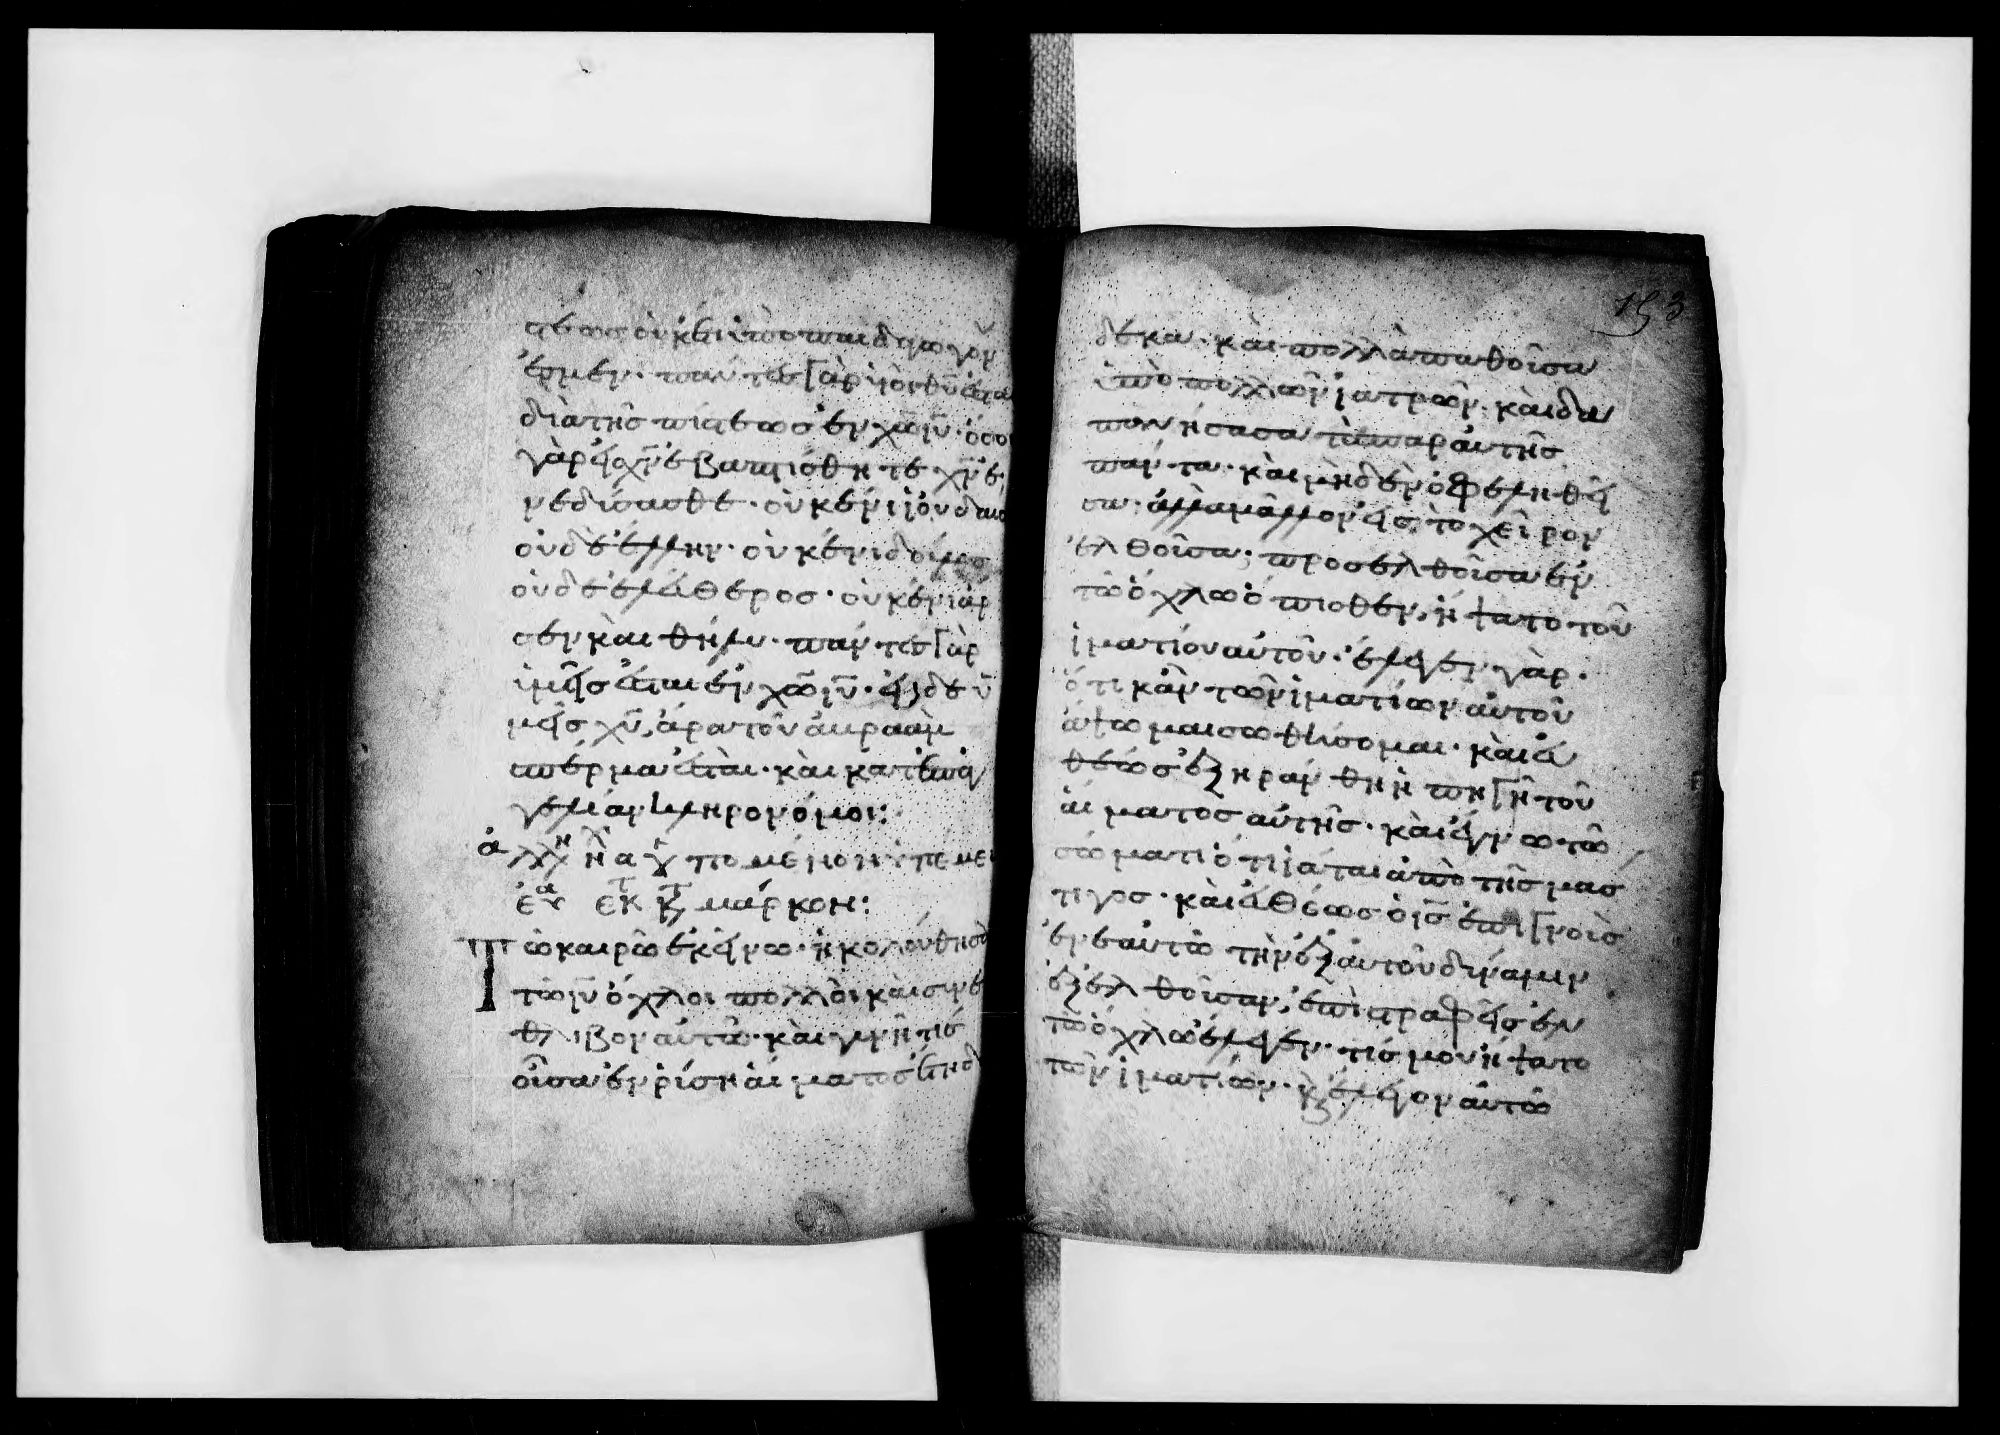 στεωσ οὐκέτι ὑπὸ παιδαγωγόν
ἐσμεν· πάντες γὰρ υἱοὶ θυ ἐσται
διὰ τῆσ πίστεωσ ἐν χω ιυ· ὅσοι
γὰρ εἰσ χν ἐβαπτίσθητε χν ἐ
νεδύσασθε· οὐκ ἔνι ἰουδαιο
οὐδὲ ἕλλην· οὐκ ἔνι δοῦλοσ
οὐδὲ ἐλεύθεροσ· οὐκ ἔνι ἄρ
σεν καὶ θῆλυ· πάντεσ γὰρ
ὑμεῖσ εἷσ ἐσται ἐν χω ιυ· εἰ δὲ ὑ
μεῖσ χυ, ἄρα τοῦ ἀβραὰμ
σπέρμα ἐσται· καὶ κατ' ἐπαγ
γελίαν κληρονόμοι:
ὑπομένον ὑπεμει
ευα εκ τ κτ μάρκον:
Τῶ καιρῶ ἐκείνω· ἠκολούθησα
τῶ ιυ ὄχλοι πολλοὶ καὶ συνέ
θλιβον αὐτῶ· καὶ γυνή τισ
οὖσα ἐν ρύσει αἵματοσ ἔτη δώ
δεκα· καὶ πολλὰ παθοῦσα
ὑπὸ πολλῶν ἰατρῶν· καὶ δα
πανήσασα τὰ παρ' αὐτῆσ
πάντα· καὶ μηδὲν ὀφεληθεῖ
σα· ἀλλὰ μᾶλλον εἰσ τὸ χεῖρον
ἐλθοῦσα· προσελθοῦσα ἐν
τῶ ὄχλω ὄπισθεν, ἥψατο τοῦ
ἱματίου αὐτοῦ· ἔλεγεν γὰρ·
ὅτι κἂν τῶν ἱματίων αὐτοῦ
ἅψωμαι σωθήσομαι· καὶ εὐ
θέωσ ἐξηράνθη ἡ πηγὴ τοῦ
αἵματοσ αὐτῆσ· καὶ ἔγνω τῶ
σώματι ὅτι ἴαται ἀπὸ τῆσ μάσ
τιγοσ· καὶ εὐθέωσ ὁ ισ ἐπιγνοὺσ
ἐν ἑαυτῶ τὴν ἐξ αὐτοῦ δύναμιν
ἐξελθοῦσαν, ἐπιστραφεὶσ ἐν
τῶ ὄχλω ἔλεγεν· τίσ μου ἥψατο
τῶν ἱματίων· κ ἔλεγον αὐτῶ